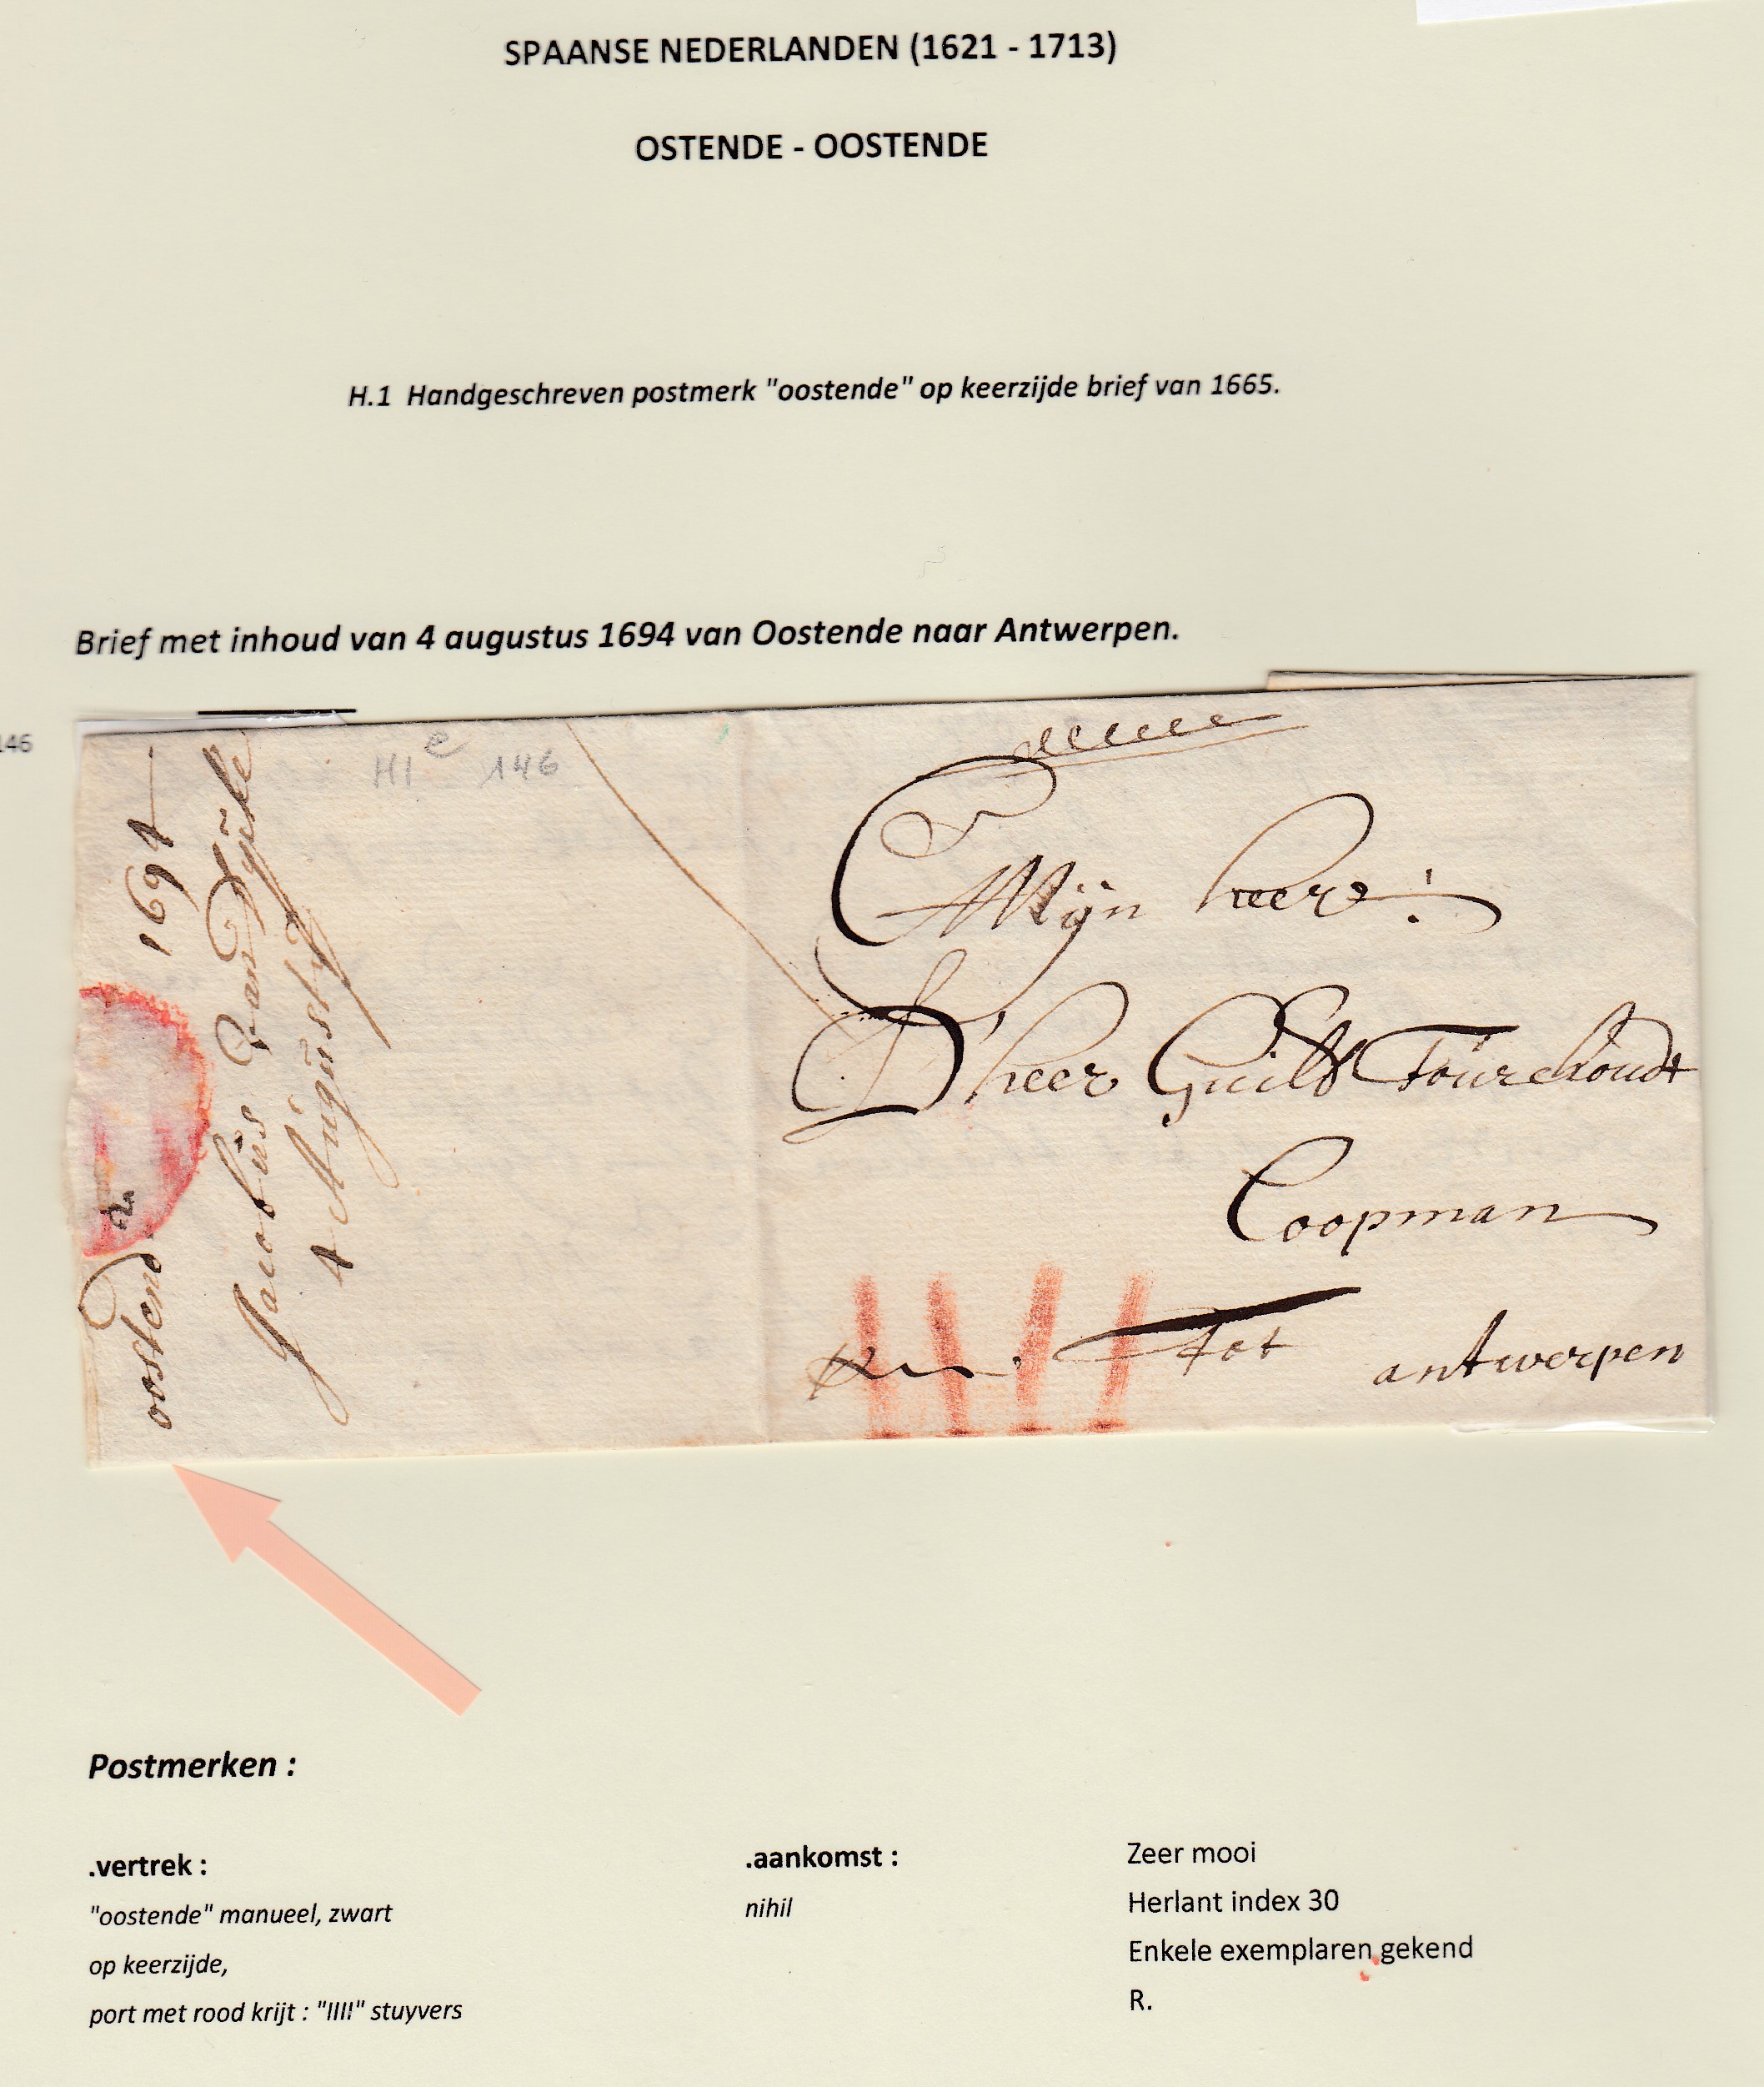 SPAANSE NEDERLANDEN (1621 - 1713)
OSTENDE - OOSTENDE
H.1 Handgeschreven postmerk "oostende" op keerzijde brief van 1665.
Brief met inhoud van 4 augustus 1694 van Oostende naar Antwerpen.
146
H1 e 146
oostend 1694
Jacobus van
4 Augusty
Mijn heere
D'heer Guill Fourchoudt
Coopman
Tot antwerpen
Postmerken :
.vertrek :
"oostende" manueel, zwart
op keerzijde,
port met rood krijt : "IIII" stuyvers
.aankomst :
nihil
Zeer mooi
Herlant index 30
Enkele exemplaren gekend
R.